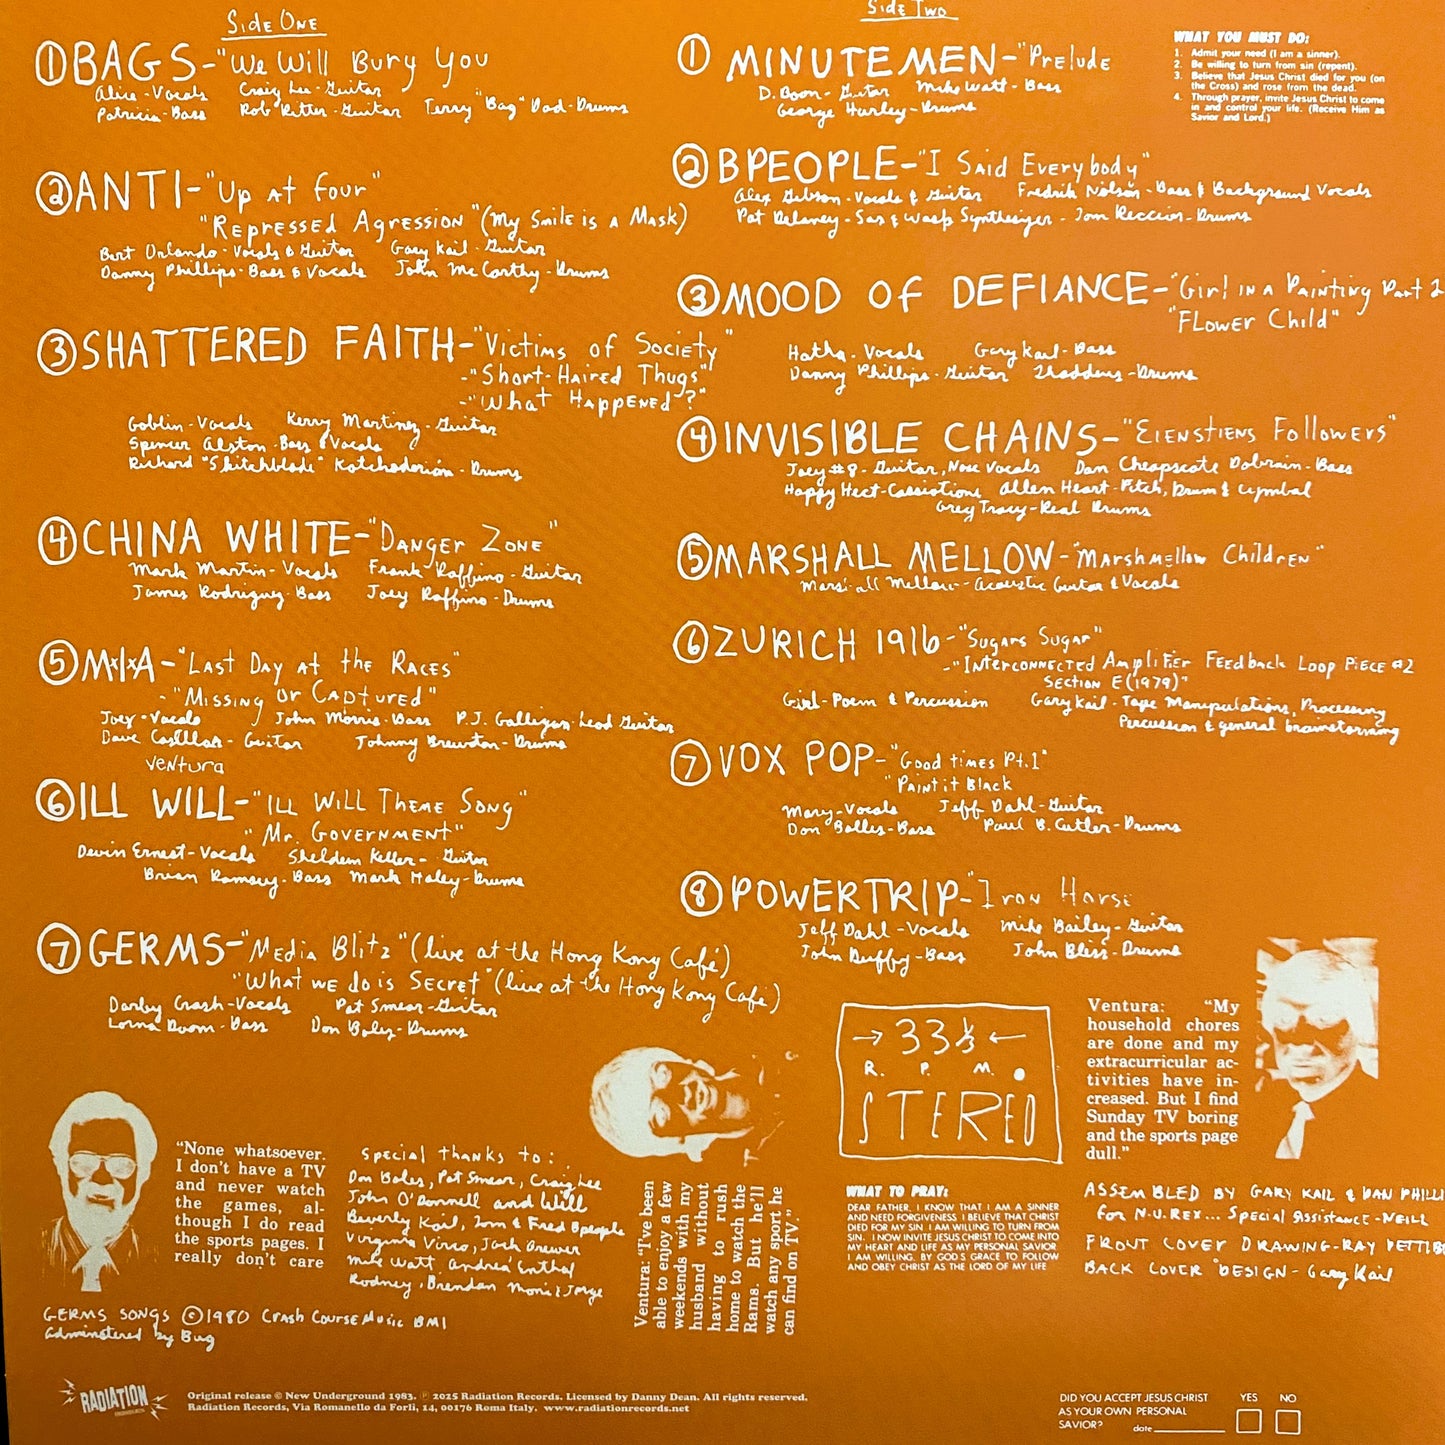 Side One
① BAGS - "We Will Bury You
Alice - Vocals Craig Lee - Guitar
Patricia - Bass Rob Ritter - Guitar Terry "Bag" Dad - Drums
② ANTI - "Up at four"
"Repressed Agression" (My Smile is a Mask)
Bert Orlando - Vocals & Guitar Gary Kail - Guitar
Danny Phillips - Bass & Vocals John McCarthy - Drums
③ SHATTERED FAITH - "Victims of Society"
- "Short-Haired Thugs"
- "What Happened?"
Goblin - Vocals Kerry Martinez - Guitar
Spencer Alston - Bass & Vocals
Richard "Skitchblade" Katchadorian - Drums
④ CHINA WHITE - "Danger Zone"
Mark Martin - Vocals Frank Raffino - Guitar
James Rodriguez - Bass Joey Raffino - Drums
⑤ M×I×A - "Last Day at the Races"
- "Missing or Captured"
Joey - Vocals John Morris - Bass P.J. Galligan - Lead Guitar
Dave - Guitar Johnny Brewton - Drums
Ventura
⑥ ILL WILL - "Ill Will Theme Song"
"Mr. Government"
Devin Ernest - Vocals Sheldem Keller - Guitar
Brian Ramsey - Bass Mark Haley - Drums
⑦ GERMS - "Media Blitz" (live at the Hong Kong Café)
"What we do is Secret" (live at the Hong Kong Café)
Darby Crash - Vocals Pat Smear - Guitar
Lorna Doom - Bass Don Boles - Drums
"None whatsoever.
I don't have a TV
and never watch
the games, al-
though I do read
the sports pages. I
really don't care
Special thanks to:
Don Boles, Pat Smear, Craig Lee
John O'Donnell and Will
Beverly Kail, Tom & Fred Bpeople
Virginia Virco, Jack Brewer
Mike Watt, Andrea Enthal
Rodney, Brendan Moni & Jorge
Ventura: "I've been
able to enjoy a few
weekends with my
husband without
having to rush
home to watch the
Rams. But he'll
watch any sport he
can find on TV."
GERMS SONGS ©1980 Crash Course Music BMI
Adminstered by Bug
Side Two
① MINUTEMEN - "Prelude
D. Boon - Guitar Mike Watt - Bass
George Hurley - Drums
WHAT YOU MUST DO:
1. Admit your need (I am a sinner).
2. Be willing to turn from sin (repent).
3. Believe that Jesus Christ died for you (on
the Cross) and rose from the dead.
4. Through prayer, invite Jesus Christ to come
in and control your life. (Receive Him as
Savior and Lord.)
② BPEOPLE - "I Said Everybody"
Alex Gibson - Vocals & Guitar Fredrik Nilson - Bass & Background Vocals
Pat Delaney - Sax & Wasp Synthesizer - Tom Reccion - Drums
③ MOOD OF DEFIANCE - "Girl in a Painting Part 2
"Flower Child"
Hatha - Vocals Gary Kail - Bass
Danny Phillips - Guitar Thaddeus - Drums
④ INVISIBLE CHAINS - "Eienstiens Followers"
Joey #8 - Guitar, Nose Vocals Dan Cheapscate Dobrain - Bass
Happy Hect - Cassiotone Allen Heart - Fetch, Drum & cymbal
Greg Tracy - Real Drums
⑤ MARSHALL MELLOW - "Marshmellow Children"
Marshall Mellow - Acoustic Guitar & Vocals
⑥ ZURICH 1916 - "Sugars Sugar"
- "Interconnected Amplifier Feedback Loop Piece #2
Section E (1979)"
Girl - Poem & Percussion Gary Kail - Tape Manipulations, Processing
Percussion & general brainstorming
⑦ VOX POP - "Good times Pt.1"
"Paint it Black
Mary - Vocals Jeff Dahl - Guitar
Don Bolles - Bass Paul B. Cutler - Drums
⑧ POWERTRIP - "Iron Horse
Jeff Dahl - Vocals Mike Bailey - Guitar
John Duffy - Bass John Bliss - Drums
→ 33⅓ ←
R. P. M.
STEREO
Ventura: "My
household chores
are done and my
extracurricular ac-
tivities have in-
creased. But I find
Sunday TV boring
and the sports page
dull."
WHAT TO PRAY:
DEAR FATHER, I KNOW THAT I AM A SINNER
AND NEED FORGIVENESS. I BELIEVE THAT CHRIST
DIED FOR MY SIN. I AM WILLING TO TURN FROM
SIN. I NOW INVITE JESUS CHRIST TO COME INTO
MY HEART AND LIFE AS MY PERSONAL SAVIOR.
I AM WILLING, BY GOD'S GRACE TO FOLLOW
AND OBEY CHRIST AS THE LORD OF MY LIFE
ASSEMBLED BY GARY KAIL & DAN PHILLI
for N.U. REX... Special Assistance - NEILL
FRONT COVER DRAWING - RAY PETTIB
BACK COVER DESIGN - Gary Kail
RADIATION
Original release © New Underground 1983. ℗ 2025 Radiation Records. Licensed by Danny Dean. All rights reserved.
Radiation Records, Via Romanello da Forlì, 14, 00176 Roma Italy. www.radiationrecords.net
DID YOU ACCEPT JESUS CHRIST YES NO
AS YOUR OWN PERSONAL
SAVIOR? date